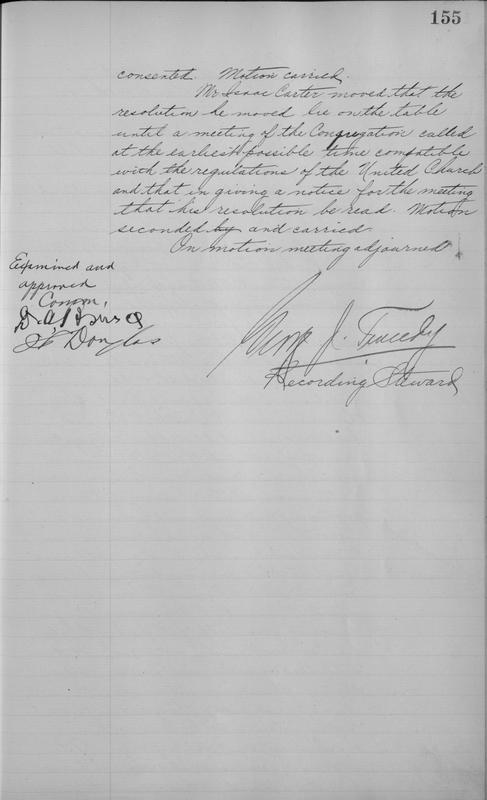 155
consented. Motion carried.
Mr Isaac Carter moved that the
resolution he moved lie on the table
until a meeting of the Congregation called
at the earliest possible time compatible
with the regulations of the United Church
and that in giving a notice for the meeting
that his resolution be read. Motion
seconded by and carried.
On motion meeting adjourned
Examined and
approved
Douglas
J. Tweedy
Recording Steward